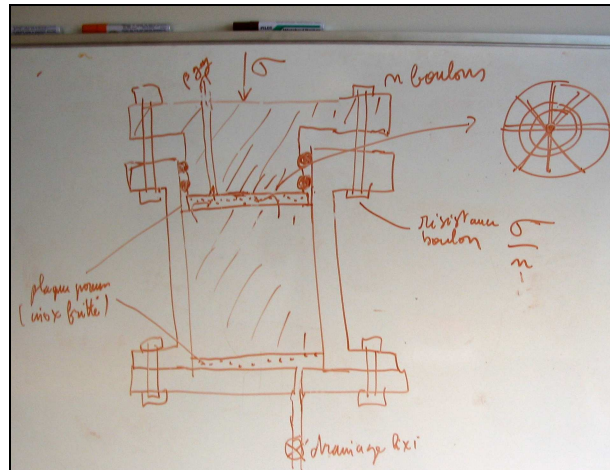 σ
n boulons
résistance
boulon
σ
n
plaque poreux
(inox fritté)
drainage lixi